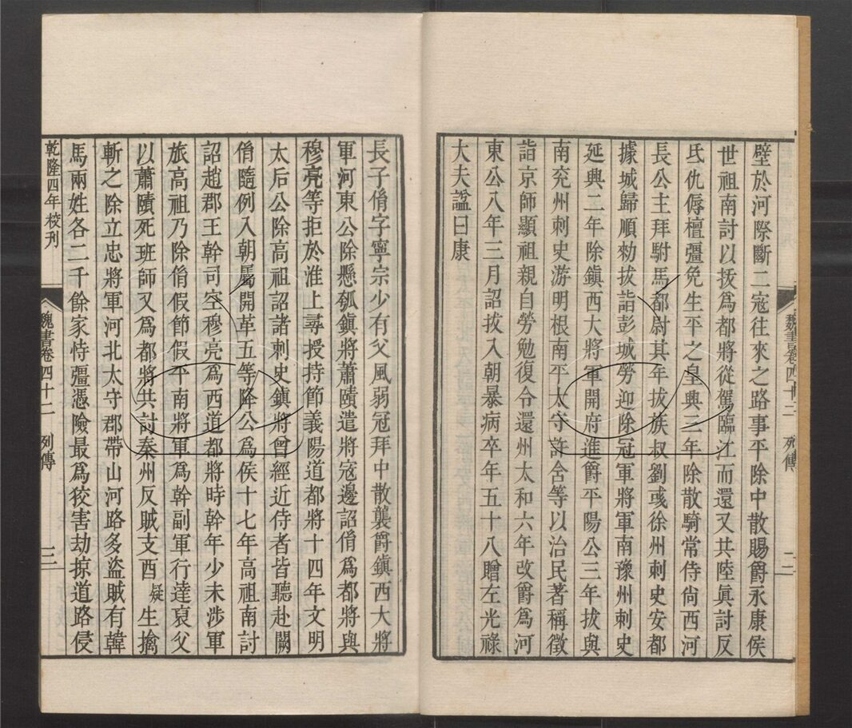 壁於河際斷二寇往來之路事平除中散賜爵永康侯
世祖南討以拔爲都將從駕臨江而還又共陸眞討反
氐仇傉檀彊免生平之皇興三年除散騎常侍尚西河
長公主拜駙馬都尉其年拔族叔劉彧徐州刺史安都
據城歸順勑拔詣彭城勞迎除冠軍將軍南豫州刺史
延興二年除鎭西大將軍開府進爵平陽公三年拔與
南兖州刺史游明根南平太守許含等以治民著稱徵
詣京師顯祖親自勞勉復令還州太和六年改爵爲河
東公八年三月詔拔入朝暴病卒年五十八贈左光祿
大夫諡曰康
魏書卷四十二 列傳 二
長子脩字寧宗少有父風弱冠拜中散襲爵鎭西大將
軍河東公除懸瓠鎭將蕭賾遣將寇邊詔脩爲都將與
穆亮等拒於淮上尋授持節義陽道都將十四年文明
太后公除高祖詔諸刺史鎭將曾經近侍者皆聽赴闕
脩隨例入朝屬開革五等降公爲侯十七年高祖南討
詔趙郡王幹司空穆亮爲西道都將時幹年少未涉軍
旅高祖乃除脩假節假平南將軍爲幹副軍行達襄父
以蕭賾死班師又爲都將共討秦州反賊支酉疑生擒
斬之除立忠將軍河北太守郡帶山河路多盜賊有韓
馬兩姓各二千餘家恃彊憑險最爲狡害劫掠道路侵
乾隆四年校刊 魏書卷四十二 列傳 三